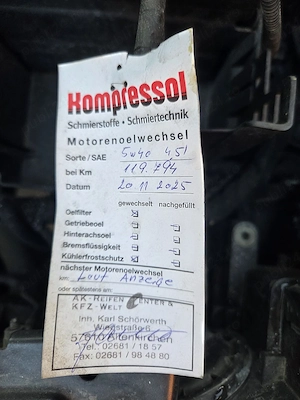 Kompressol
Schmierstoffe • Schmiertechnik
Motorenoelwechsel
Sorte/SAE 5W40 4,5l
bei Km 119.794
Datum 20.11.2025
gewechselt nachgefüllt
Oelfilter
Getriebeoel
Hinterachsoel
Bremsflüssigkeit
Kühlerfrostschutz
nächster Motorenoelwechsel
km: Laut Anzeige
oder spätestens am:
AK-REIFEN CENTER &
KFZ-WELT
Inh. Karl Schörwerth
57610 Altenkirchen
Tel.: 02681 / 18 57
Fax: 02681 / 98 48 80